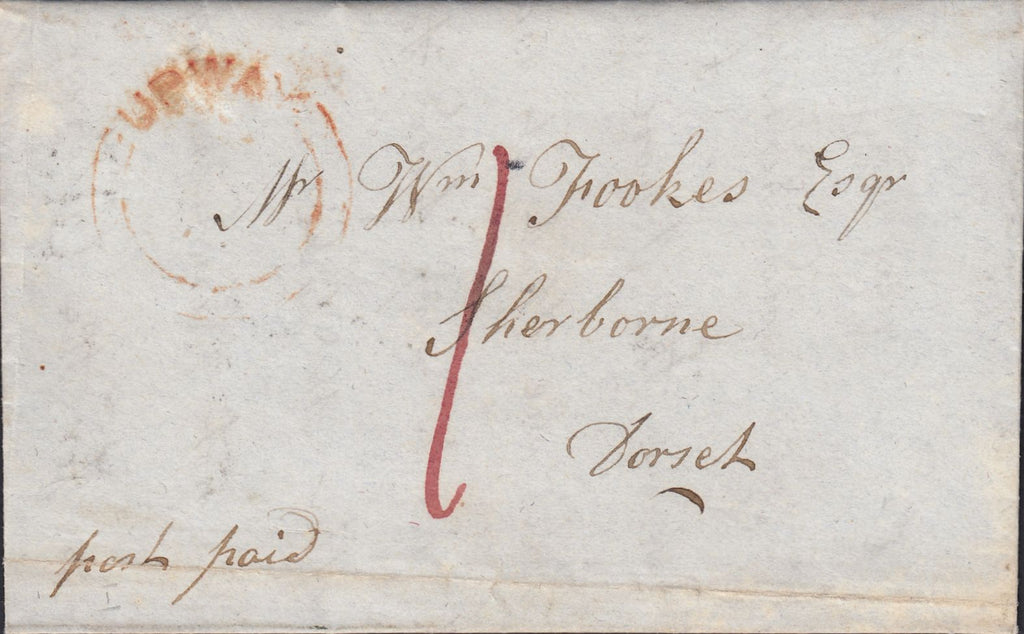 UPWAY
Mr Wm Fookes Esqr
1
Sherborne
Dorset
post paid